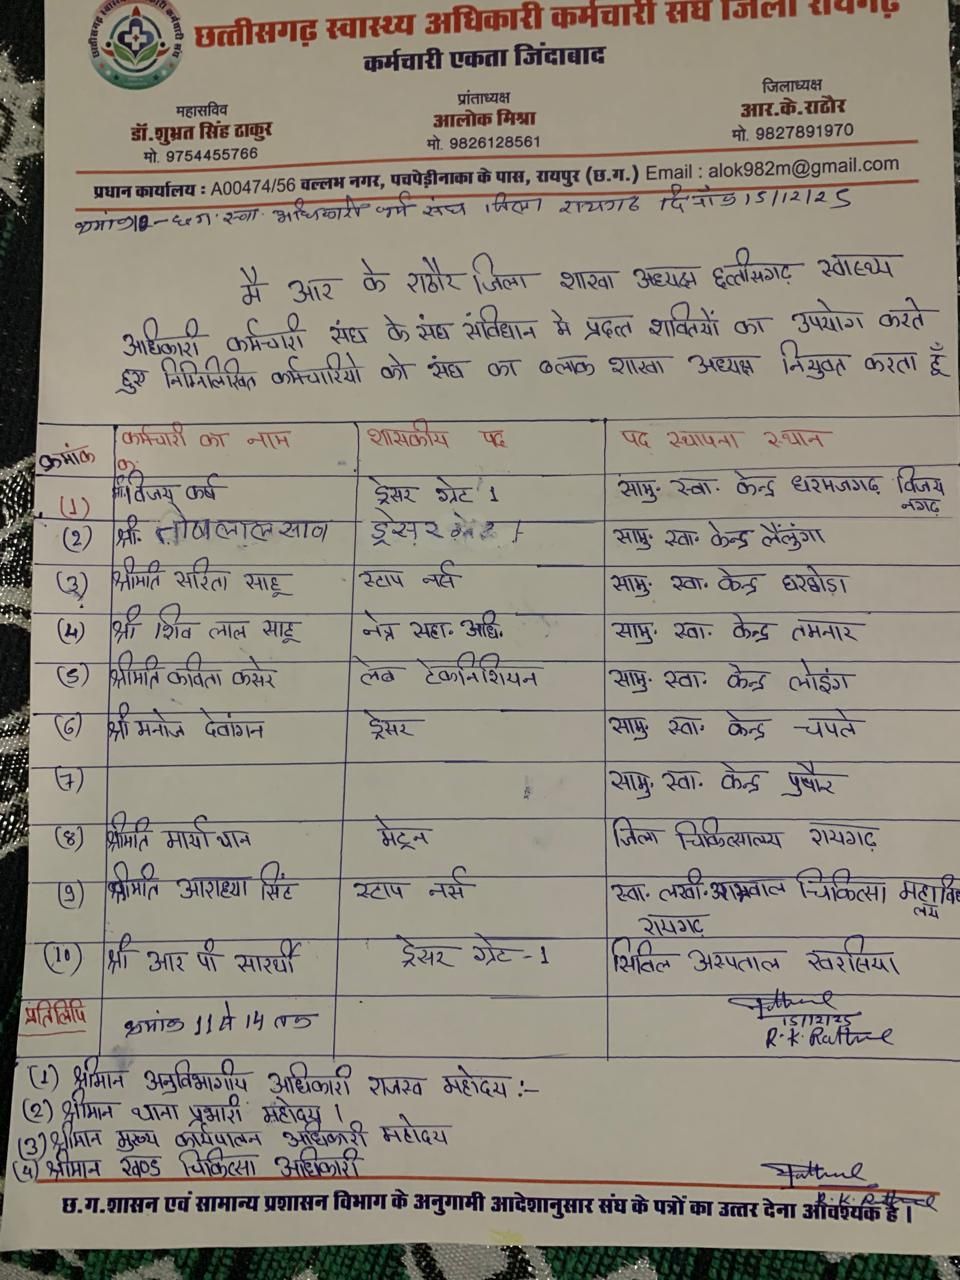 छत्तीसगढ़ स्वास्थ्य अधिकारी कर्मचारी संघ जिला रायगढ़
कर्मचारी एकता जिंदाबाद
महासविव
डॉ.शुभ्रत सिंह ठाकुर
मो. 9754455766
प्रांताध्यक्ष
आलोक मिश्रा
मो. 9826128561
जिलाध्यक्ष
आर.के.राठौर
मो. 9827891970
प्रधान कार्यालय : A00474/56 वल्लभ नगर, पचपेड़ीनाका के पास, रायपुर (छ.ग.) Email : alok982m@gmail.com
छ.ग. स्वा. अधिकारी कर्म संघ जिला रायगढ दिनाँक 15/12/25
मै आर के राठौर जिला शाखा अध्यक्ष छत्तीसगढ़ स्वास्थ्य
अधिकारी कर्मचारी संघ के संघ संविधान मे प्रदत्त शक्तियों का उपयोग करते
हुए निम्नलिखित कर्मचारियो को संघ का ब्लाक शाखा अध्यक्ष नियुक्त करता हूँ
क्रमांक कर्मचारी का नाम शासकीय पद पद स्थापना स्थान
(1) श्री विजय कर्ष ड्रेसर ग्रेट 1 सामु. स्वा. केन्द्र धरमजगढ़ विजय
नगढ़
(2) श्री. तोषलाल साव ड्रेसर सामु. स्वा. केन्द्र लैंलुंगा
(3) श्रीमति सरिता साहू स्टाप नर्स सामु. स्वा. केन्द्र घरघोड़ा
(4) श्री शिव लाल साहू नेत्र सहा. अधि. सामु. स्वा. केन्द्र तमनार
(5) श्रीमति कविता कसेर लेब टेकनिशियन सामु. स्वा. केन्द्र लोइंग
(6) श्री मनोज देवांगन ड्रेसर सामु. स्वा. केन्द्र चपले
(7) सामु. स्वा. केन्द्र पुषौर
(8) श्रीमति मार्या थान मेट्रन जिला चिकित्सालय रायगढ़
(9) श्रीमति आराध्या सिंट स्टाप नर्स स्वा. लखी. अग्रवाल चिकित्सा महाविद्य
लय
रायगढ़
(10) श्री आर पी सारथी ड्रेसर ग्रेट -1 सिविल अस्पताल खरसिया
प्रतिलिपि क्रमांक 11 से 14 तक
15/12/25
R.K. Rathore
(1) श्रीमान अनुविभागीय अधिकारी राजस्व महोदय :-
(2) श्रीमान थाना प्रभारी महोदय ।
(3) श्रीमान मुख्य कार्यपालन अधिकारी महोदय
(4) श्रीमान खण्ड चिकित्सा अधिकारी
R.K. Rathore
छ.ग.शासन एवं सामान्य प्रशासन विभाग के अनुगामी आदेशानुसार संघ के पत्रों का उत्तर देना आवश्यक है।